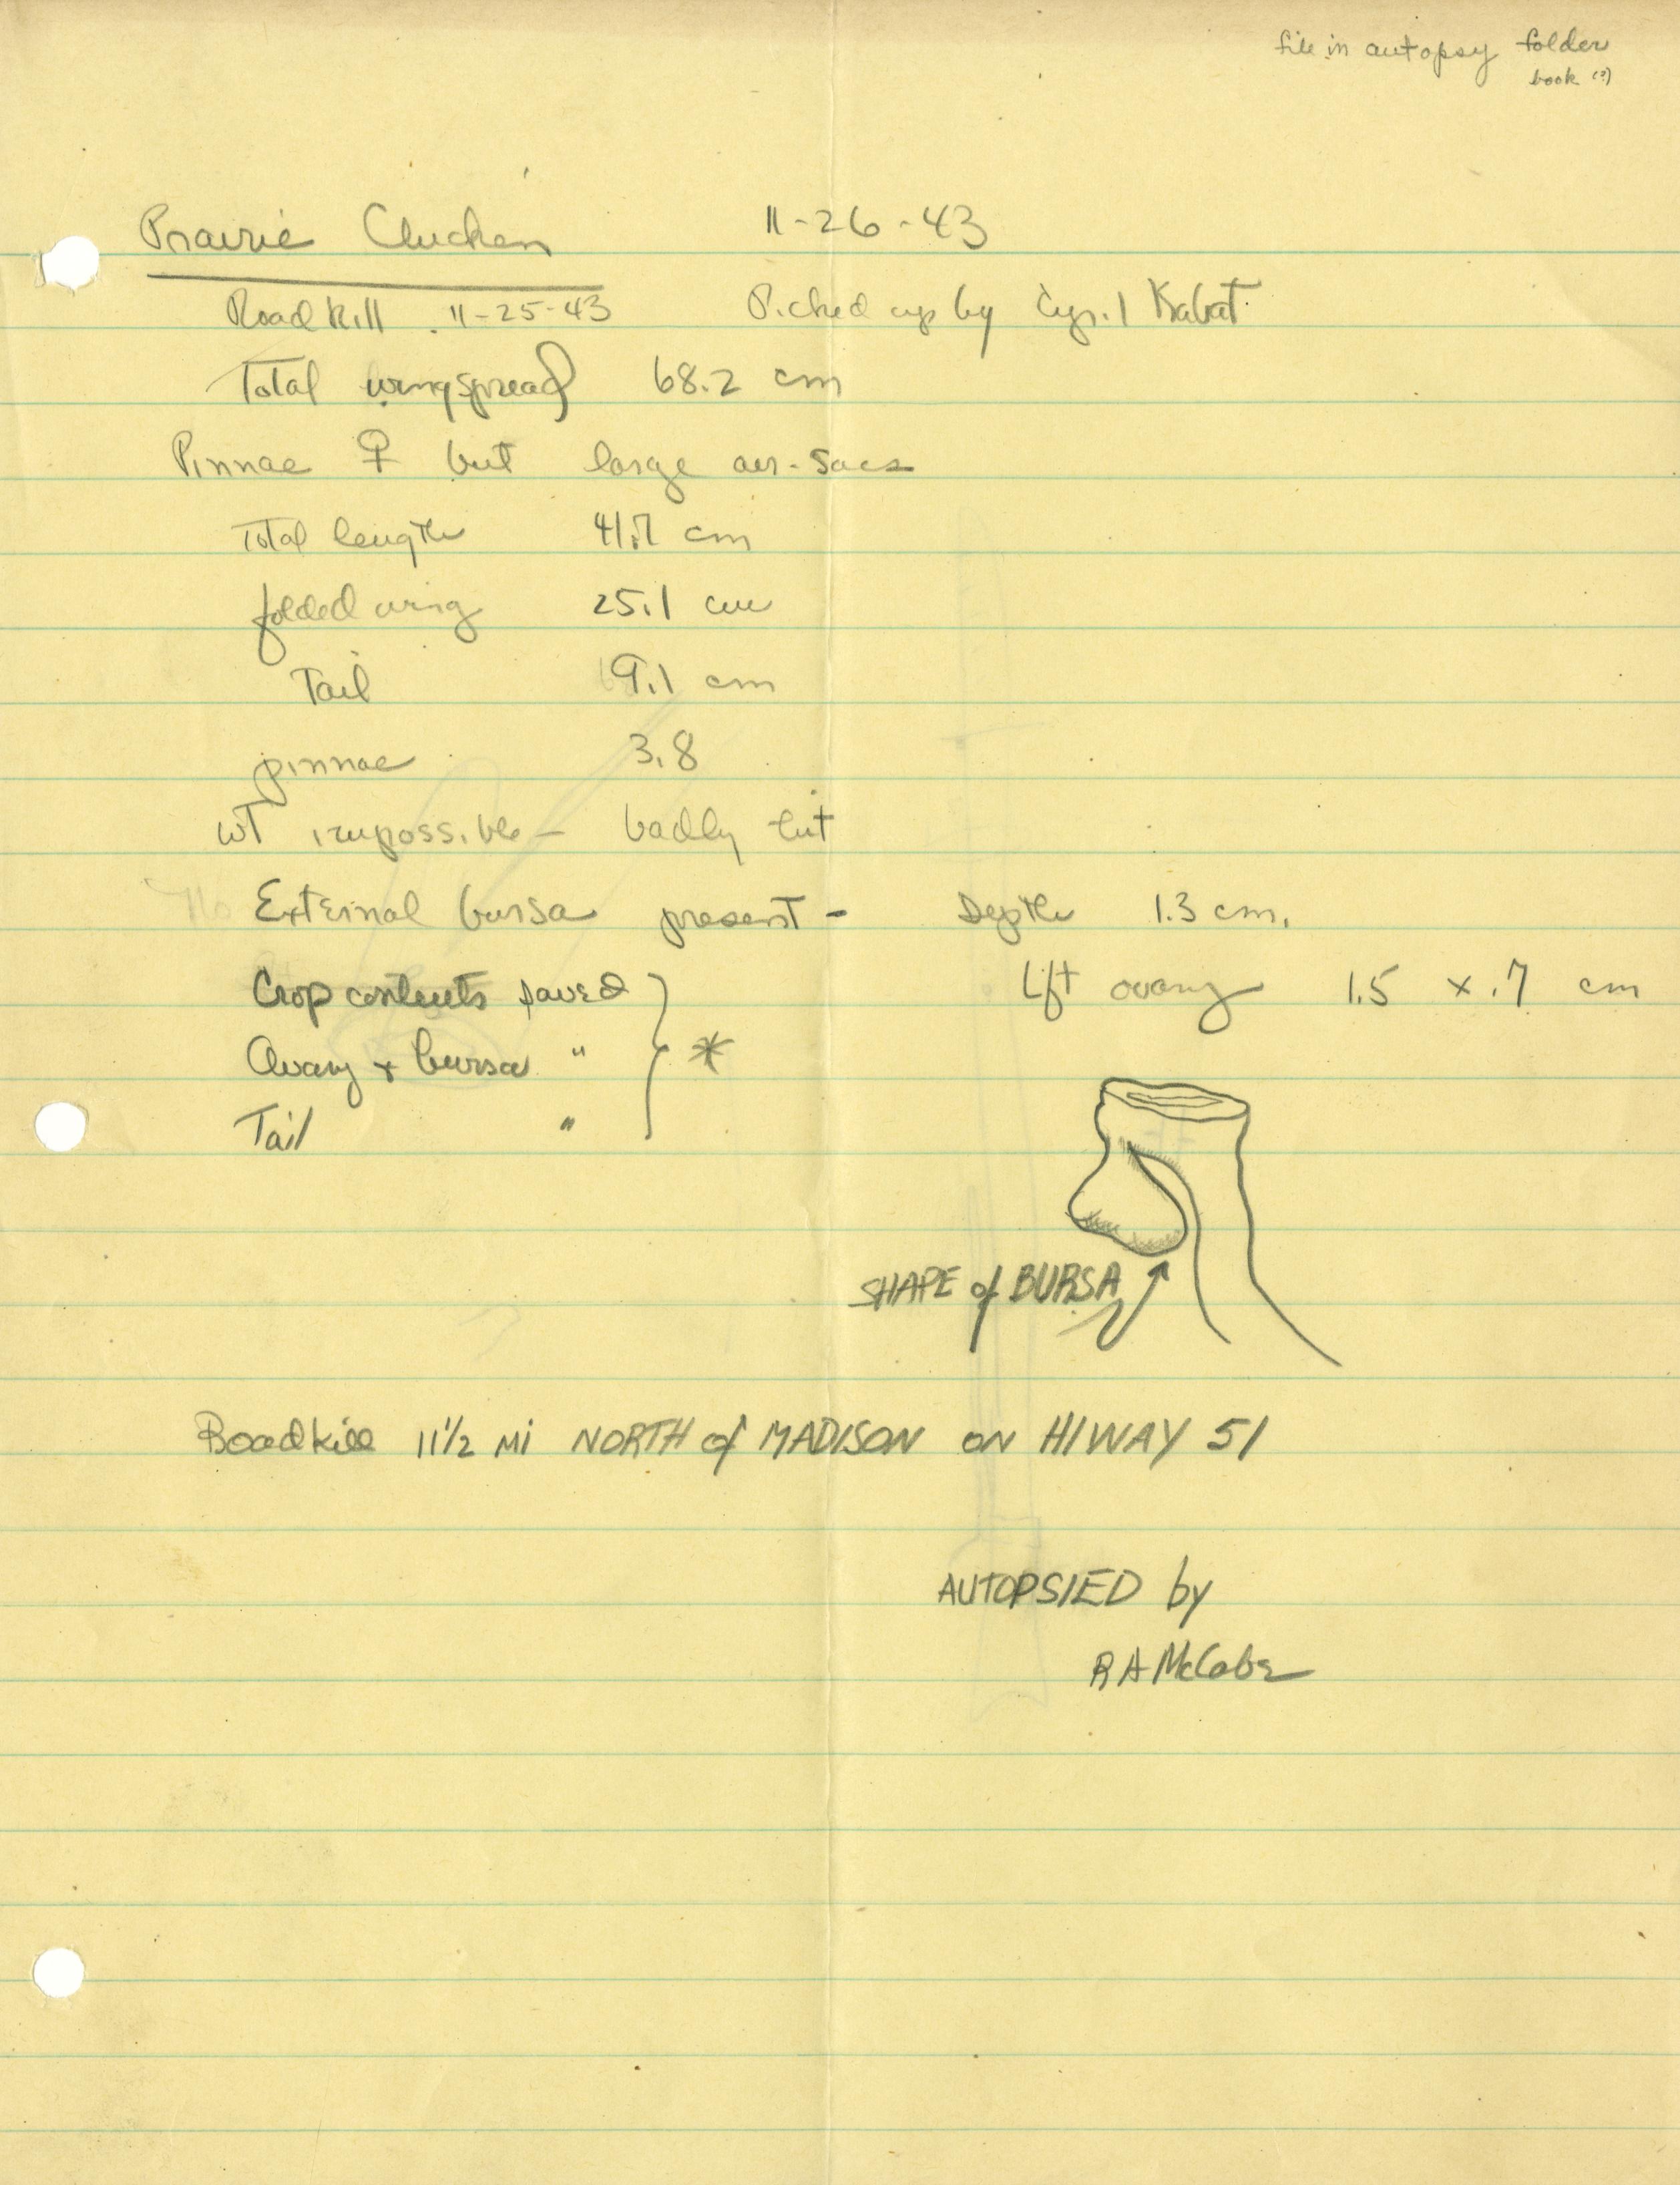 file in autopsy folder
book (?)
Prairie Chicken 11-26-43
Road Kill 11-25-43 Picked up by Cyril Kabat
Total wingspread 68.2 cm
Pinnae ♀ but large air-sacs
Total length 41.7 cm
folded wing 25.1 cm
Tail 9.1 cm
pinnae 3.8
WT impossible - badly hit
External bursa present - Depth 1.3 cm.
Crop contents saved Lft ovary 1.5 x .7 cm
Ovary + bursa " *
Tail "
SHAPE of BURSA
Roadkill 11 1/2 MI NORTH of MADISON ON HIWAY 51
AUTOPSIED by
R A McCabe